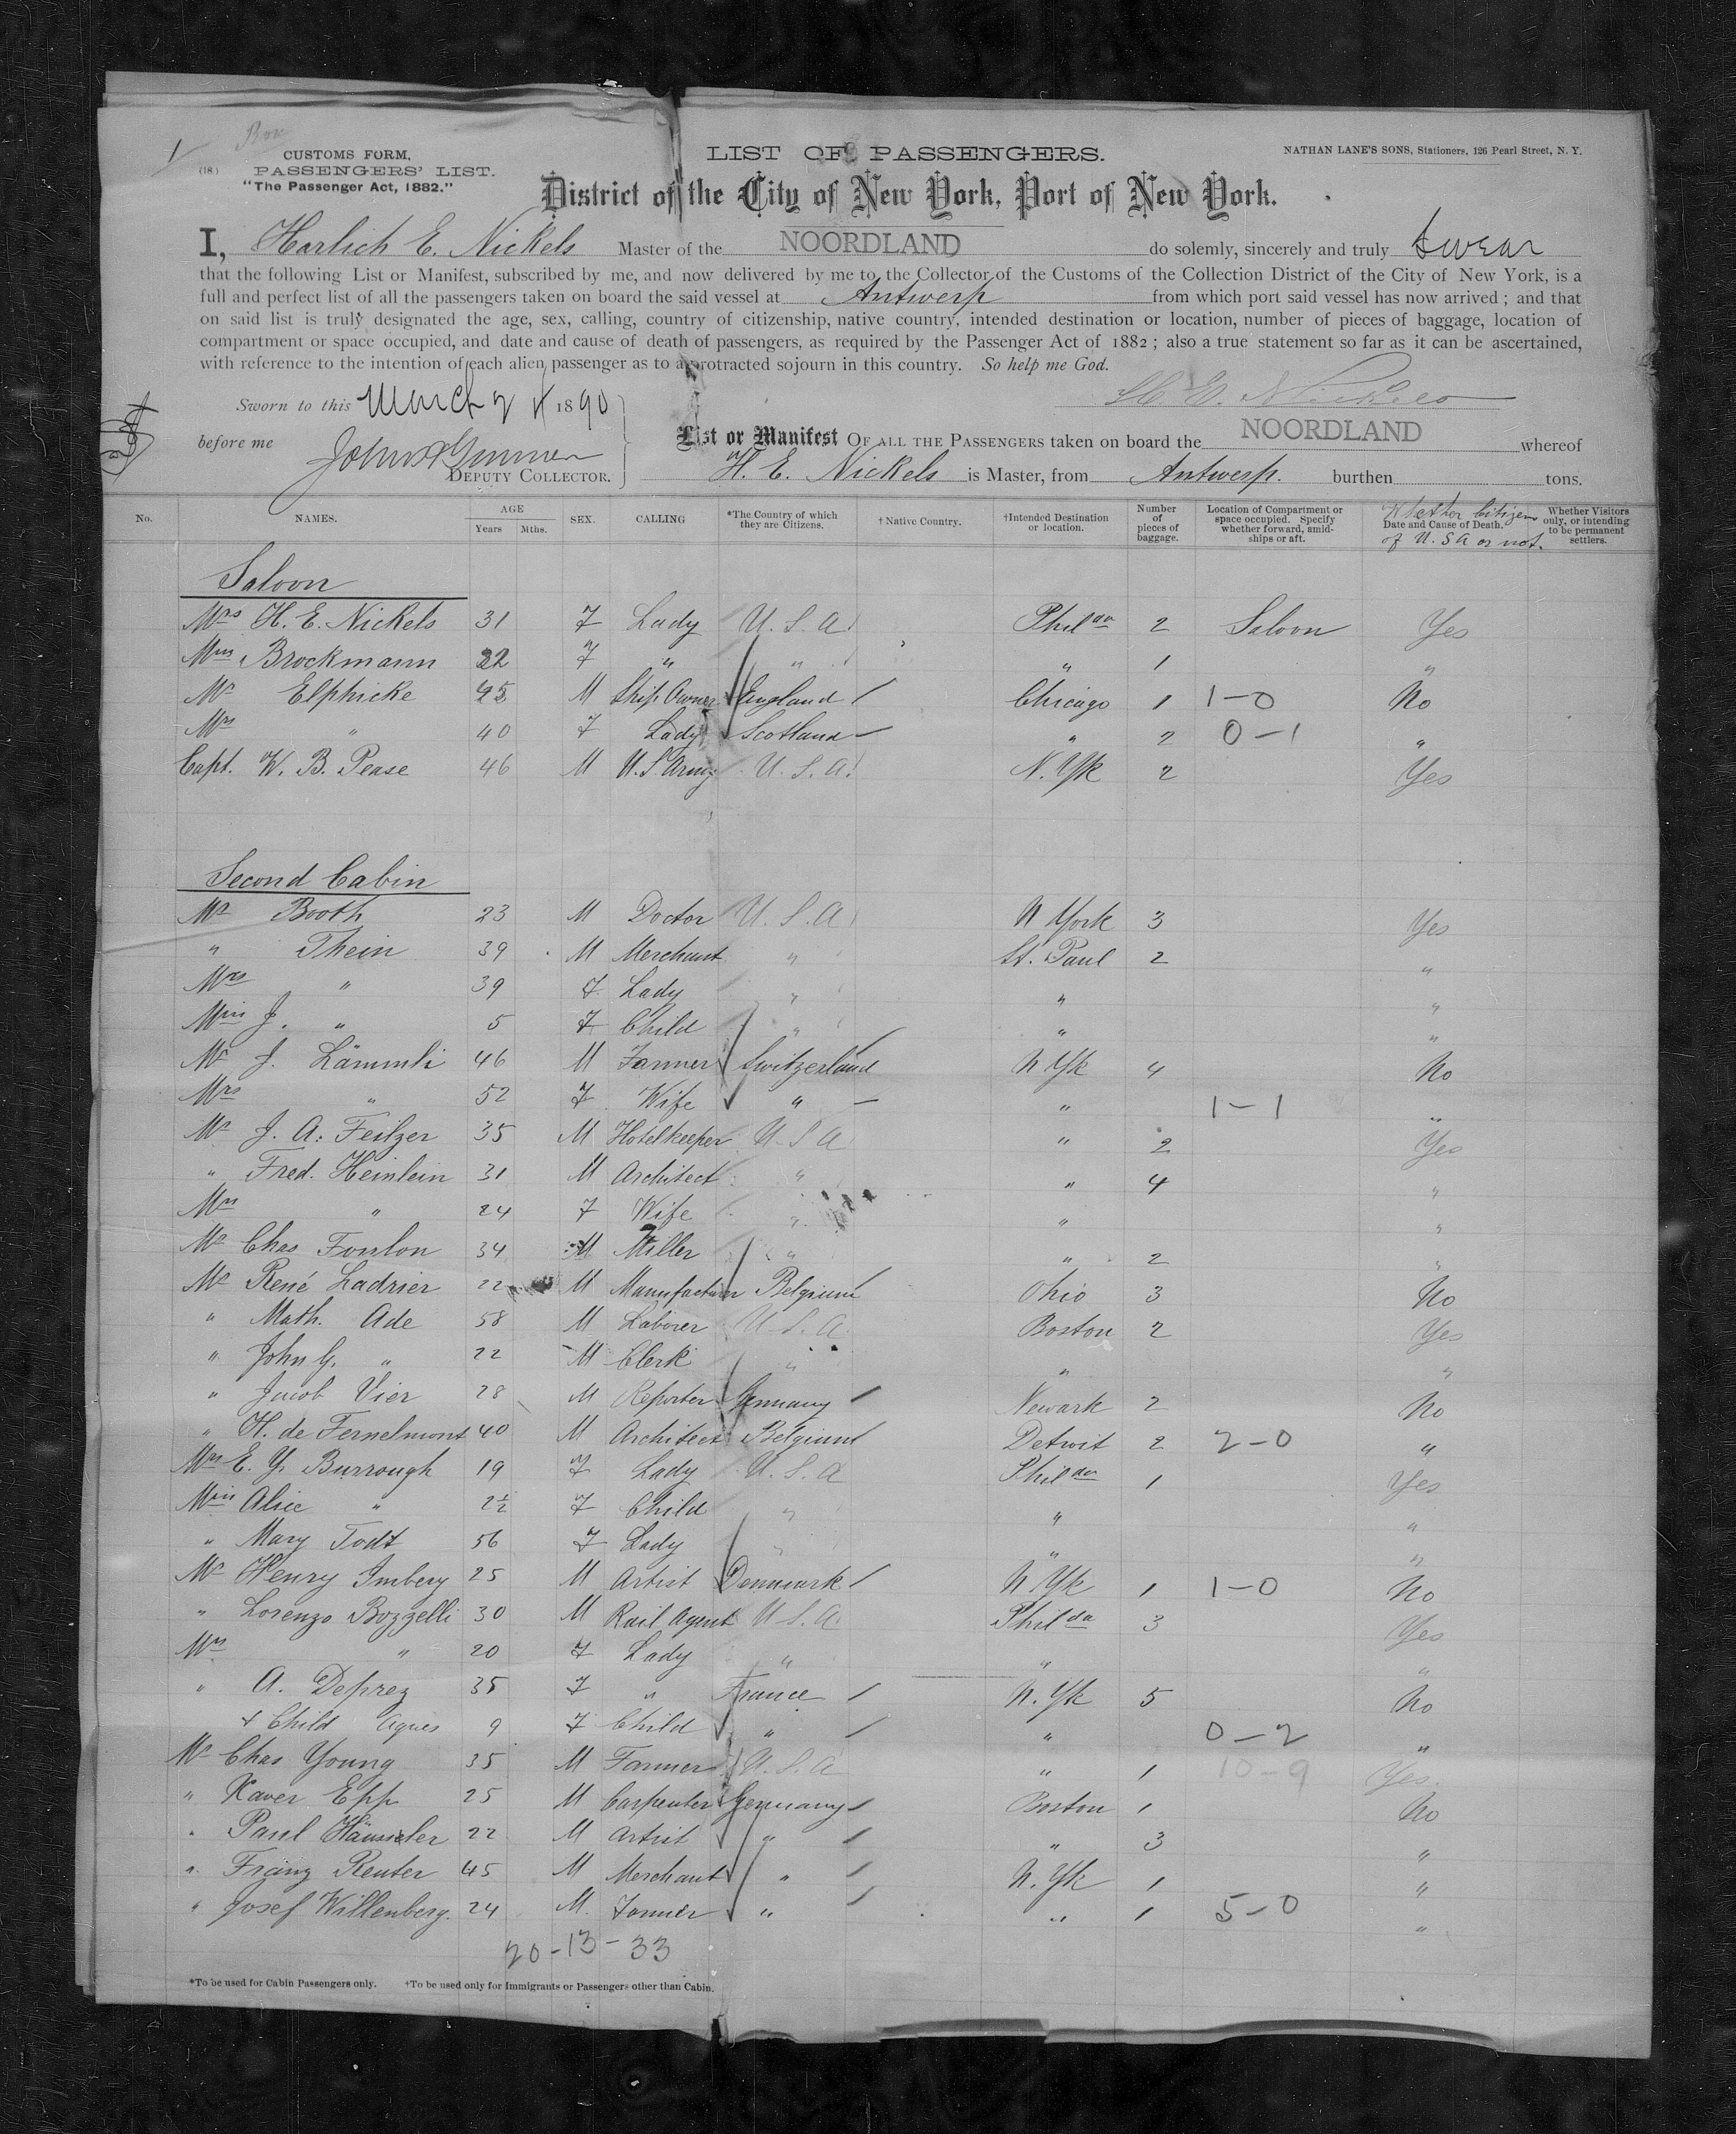 1
CUSTOMS FORM.
(18) PASSENGERS' LIST.
"The Passenger Act, 1882."
LIST OF PASSENGERS.
NATHAN LANE'S SONS, Stationers, 126 Pearl Street, N. Y.
District of the City of New York, Port of New York.
I, Harlich E. Nickels Master of the NOORDLAND do solemly, sincerely and truly swear
that the following List or Manifest, subscribed by me, and now delivered by me to the Collector of the Customs of the Collection District of the City of New York, is a
full and perfect list of all the passengers taken on board the said vessel at Antwerp from which port said vessel has now arrived; and that
on said list is truly designated the age, sex, calling, country of citizenship, native country, intended destination or location, number of pieces of baggage, location of
compartment or space occupied, and date and cause of death of passengers, as required by the Passenger Act of 1882; also a true statement so far as it can be ascertained,
with reference to the intention of each alien passenger as to a protracted sojourn in this country. So help me God.
Sworn to this March 1890
before me
DEPUTY COLLECTOR.
List or Manifest OF ALL THE PASSENGERS taken on board the NOORDLAND whereof
H. E. Nickels is Master, from Antwerp. burthen tons.
No. NAMES. AGE Years Mths. SEX. CALLING *The Country of which they are Citizens. †Native Country. †Intended Destination or location. Number of pieces of baggage. Location of Compartment or space occupied. Specify whether forward, midships or aft. Whether Citizens Date and Cause of Death. of U.S.A or not. Whether Visitors only, or intending to be permanent settlers.
Saloon
Mrs H. E. Nickels 31 F Lady U.S.A. Philda 2 Saloon Yes
Brockmann 22 F " " " 1 "
Mr Elphicke 45 M Ship Owner England Chicago 1 1-0 No
Mrs " 40 F Lady Scotland " 2 0-1 "
Capt. W. B. Pease 46 M U.S Army U.S.A. N.Yk 2 Yes
Second Cabin
Mr Booth 23 M Doctor U.S.A N York 3 Yes
" Thein 39 M Merchant " St. Paul 2 "
Mrs " 39 F Lady " " "
Miss J. " 5 F Child " " "
Mr J. Lämmli 46 M Farmer Switzerland N Yk 4 No
Mrs " 52 F Wife " " 1-1 "
Mr J. A. Feitzer 35 M Hotelkeeper U.S.A " 2 Yes
" Fred. Heinlein 31 M Architect " " 4 "
Mrs " 24 F Wife " " "
Mr Chas Foulon 34 M Miller " " 2 "
Mr René Ladrier 22 M Manufacturer Belgium Ohio 3 No
" Math. Ade 58 M Laborer U.S.A. Boston 2 Yes
" John G. " 22 M Clerk " " "
" Jacob Vier 28 M Reporter Germany Newark 2 No
" H. de Fernelmont 40 M Architect Belgium Detroit 2 2-0 "
Mrs E. Y. Burrough 19 F Lady U.S.A Philda 1 Yes
Miss Alice " 2½ F Child " " "
" Mary Todt 56 F Lady " " "
Mr Henry Imberg 25 M Artist Denmark N Yk 1 1-0 No
" Lorenzo Bozzelli 30 M Rail Agent U.S.A. Philda 3 Yes
Mrs " 20 F Lady " " "
" A. Deprez 35 F " France N.Yk 5 No
+ Child Agnes 9 F Child " " 0-2 "
Mr Chas Young 35 M Farmer U.S.A " 1 10-9 Yes.
" Xaver Epp 25 M Carpenter Germany Boston 1 No
" Paul Häussler 22 M Artist " " 3 "
" Franz Reuter 45 M Merchant " N.Yk 1 "
" Josef Willenberg. 24 M. Farmer " " 1 5-0 "
20-13-33
*To be used for Cabin Passengers only. †To be used only for Immigrants or Passengers other than Cabin.